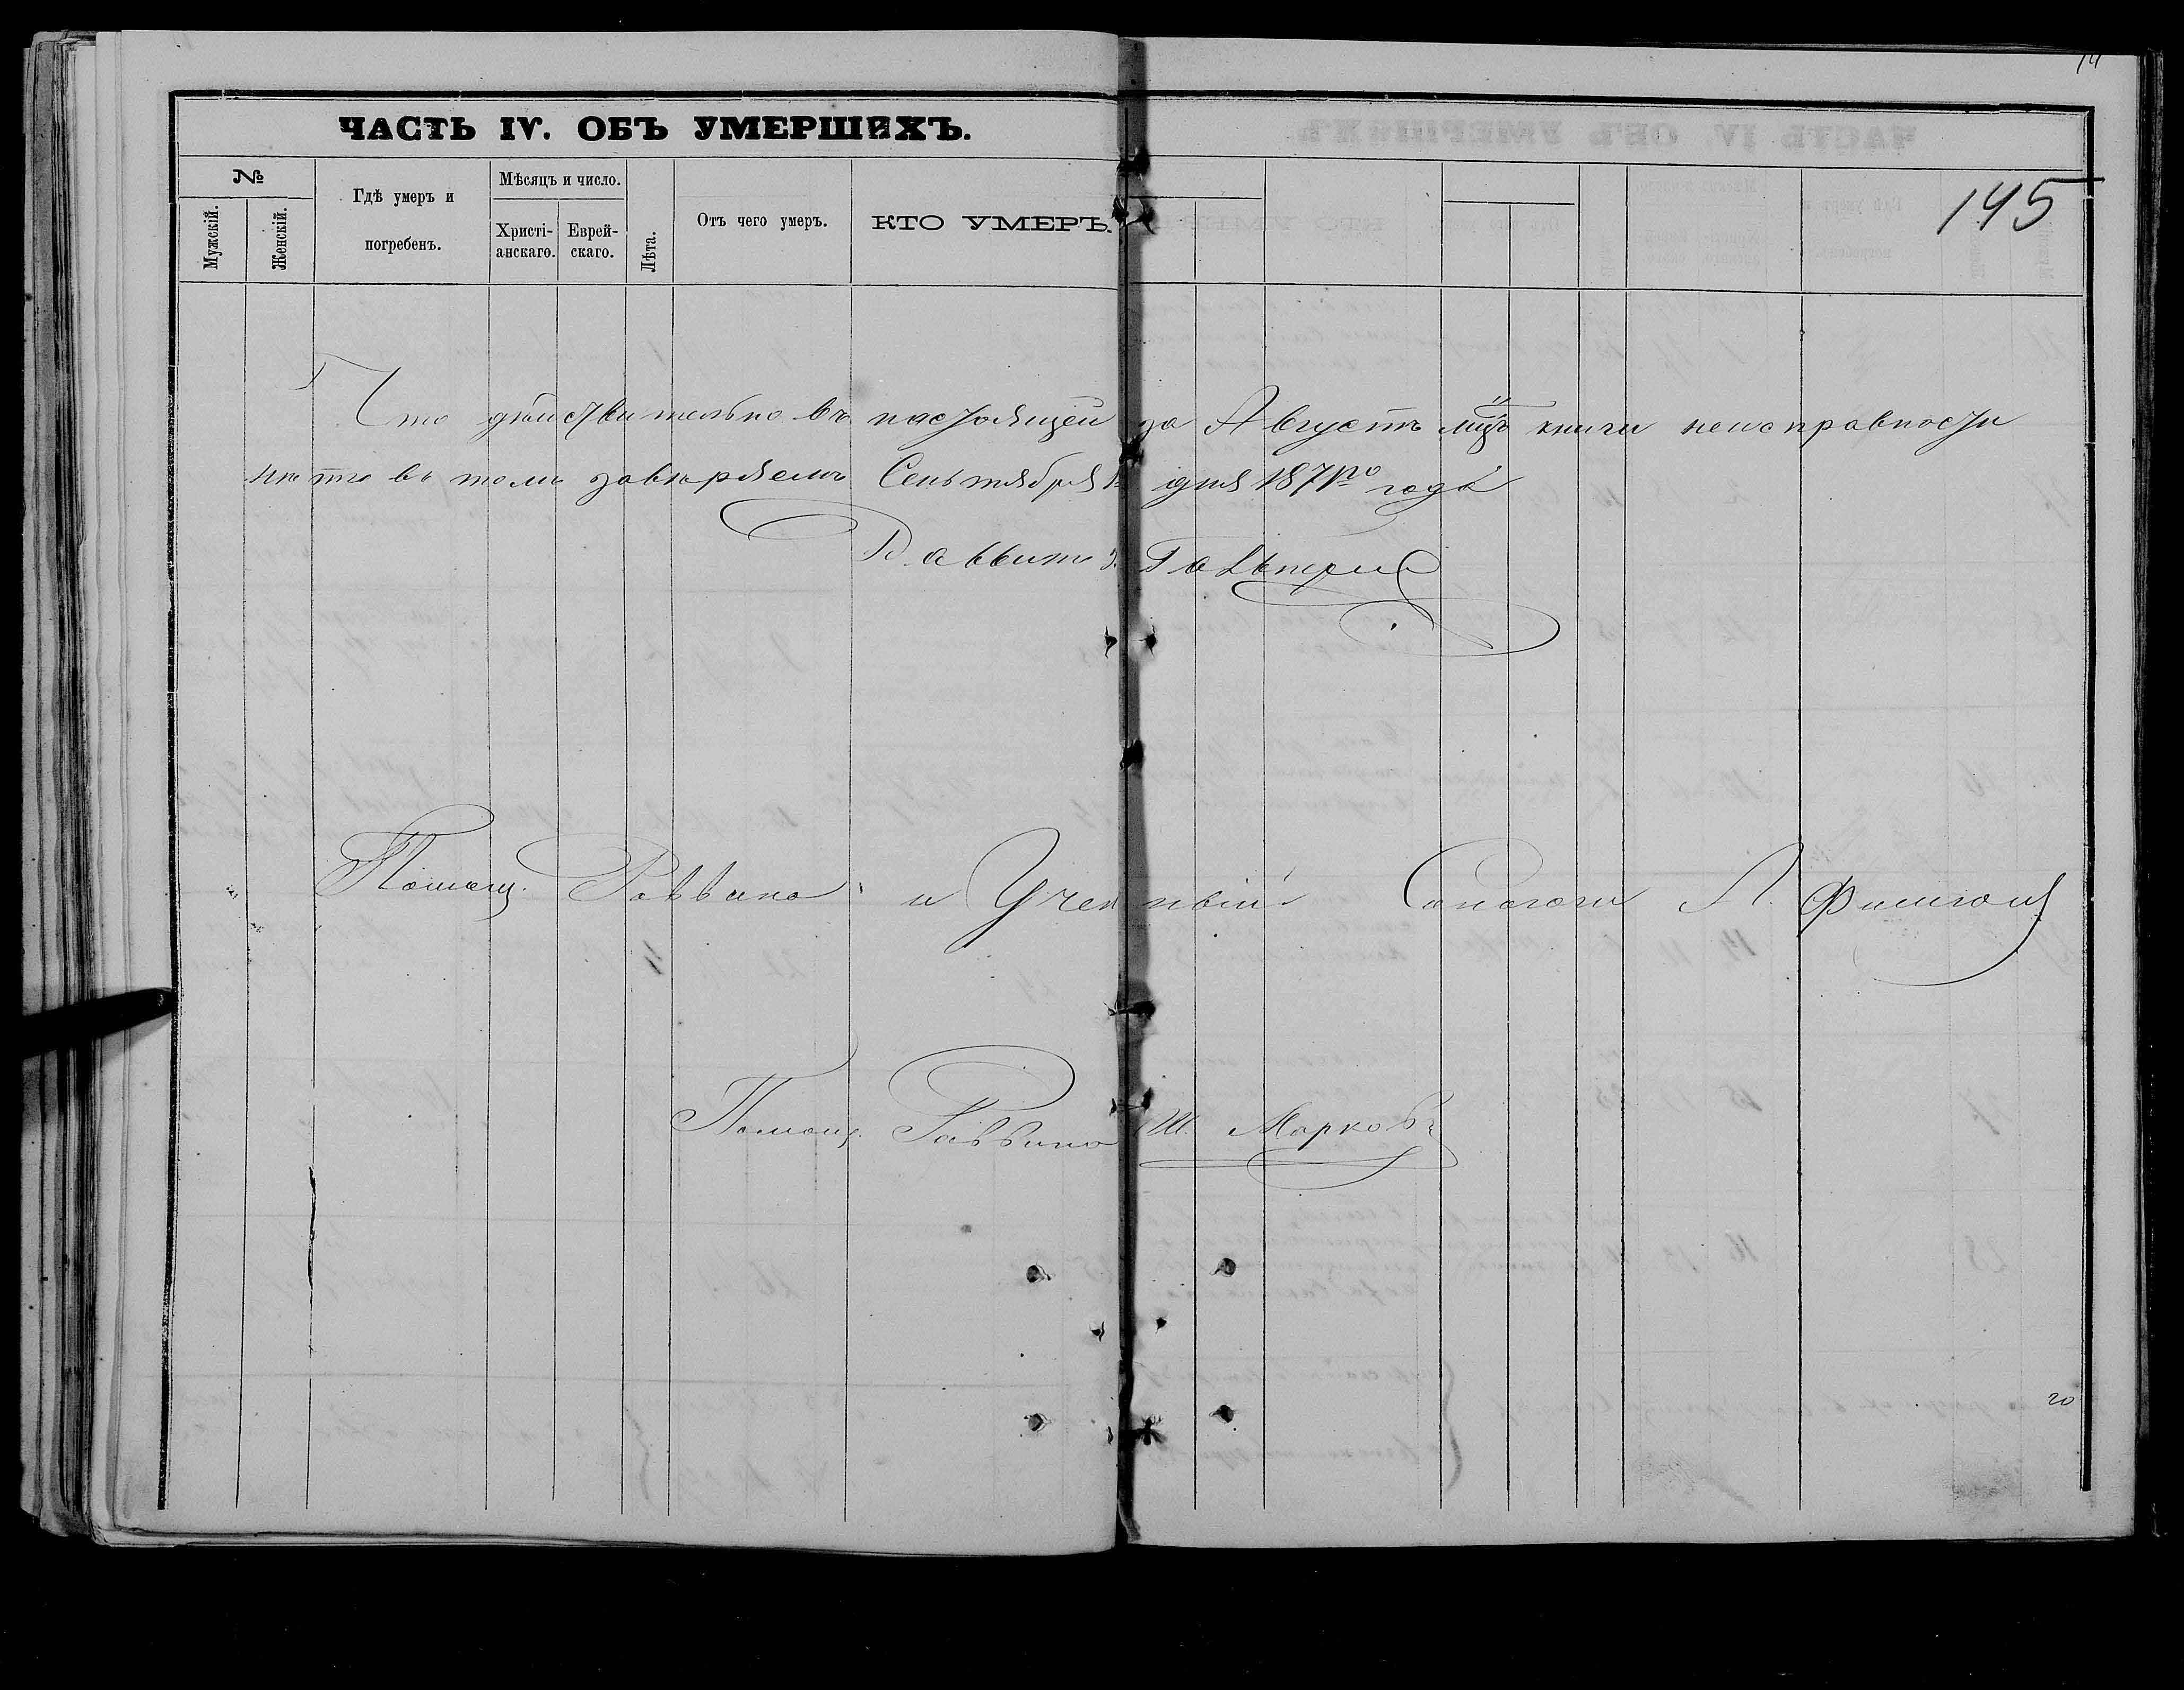 ЧАСТЬ IV. ОБЪ УМЕРШИХЪ.
№
Мужскій.
Женскій.
Гдѣ умеръ и
погребенъ.
Мѣсяцъ и число.
Христі-
анскаго.
Еврей-
скаго.
Лѣта.
Отъ чего умеръ.
КТО УМЕРЪ.
145
Что дѣйствительно въ настоящей за Августъ мцъ книги неисправности
нѣтъ въ томъ завѣряемъ Сентября 1 дня 1871го года
Раввинъ
Помощ. Раввина и Ученный А.
Помощ. Раввина Ш. Марковъ
20